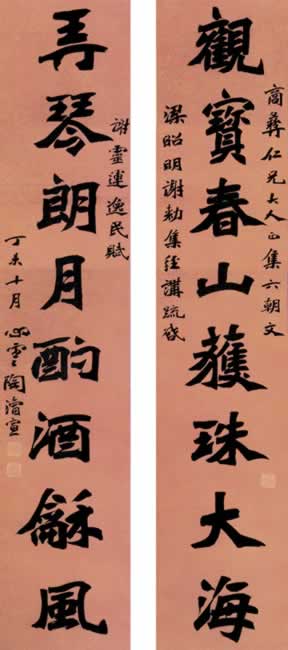 商彝仁兄大人正集六朝文
觀寶春山獲珠大海
梁昭明謝勑集經講疏啟
謝靈運逸民賦
弄琴朗月酌酒龢風
丁未十月心雲陶濬宣